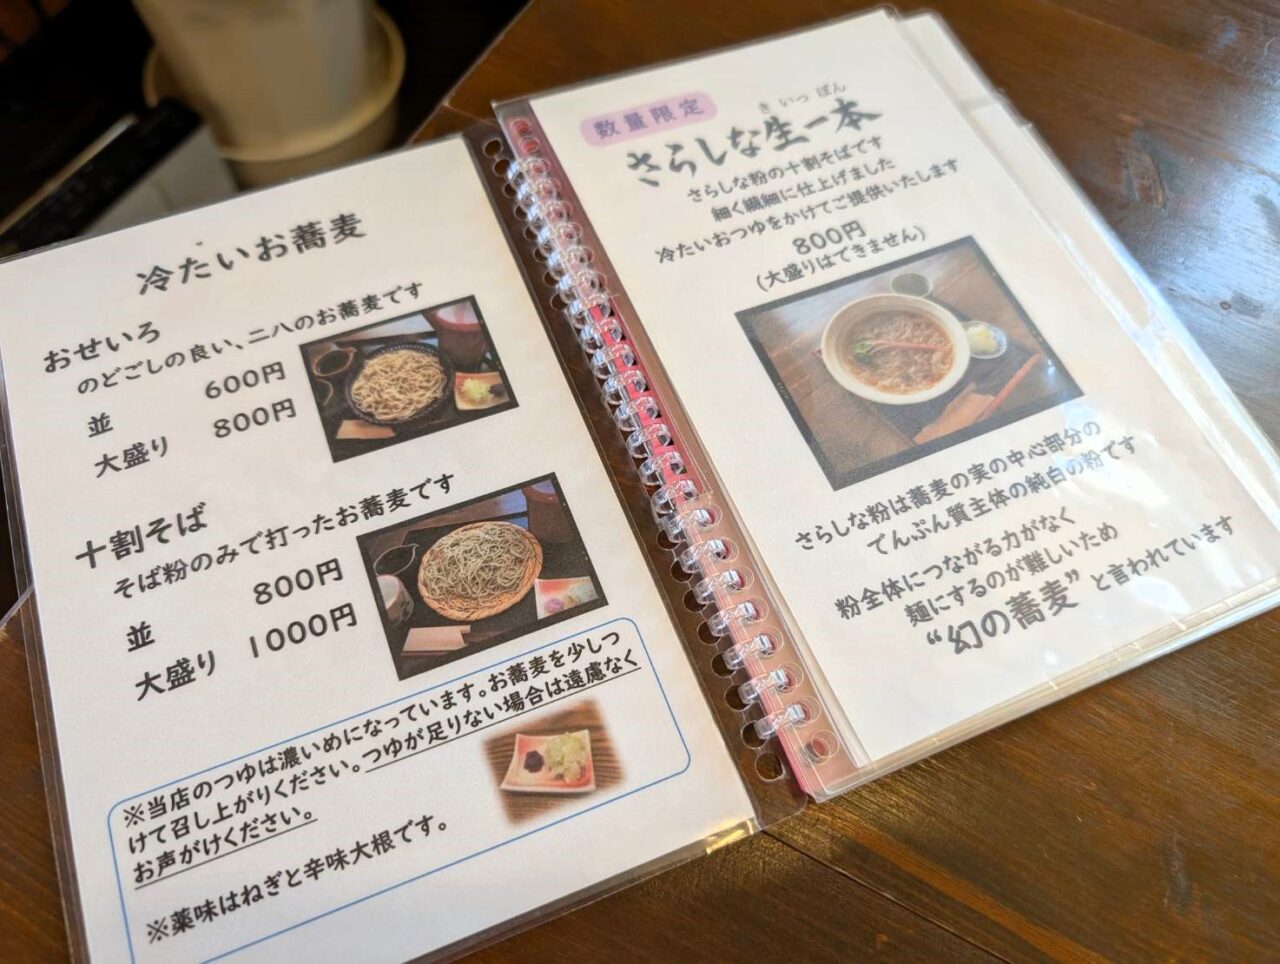 冷たいお蕎麦
おせいろ
のどごしの良い、二八のお蕎麦です
並 600円
大盛り 800円
十割そば
そば粉のみで打ったお蕎麦です
並 800円
大盛り 1000円
※当店のつゆは濃いめになっています。お蕎麦を少しつ
けて召し上がりください。つゆが足りない場合は遠慮なく
お声がけください。
※薬味はねぎと辛味大根です。
数量限定
きいっぽん
さらしな生一本
さらしな粉の十割そばです
細く繊細に仕上げました
冷たいおつゆをかけてご提供いたします
800円
(大盛りはできません)
さらしな粉は蕎麦の実の中心部分の
でんぷん質主体の純白の粉です
粉全体につながる力がなく
麺にするのが難しいため
“幻の蕎麦”と言われています